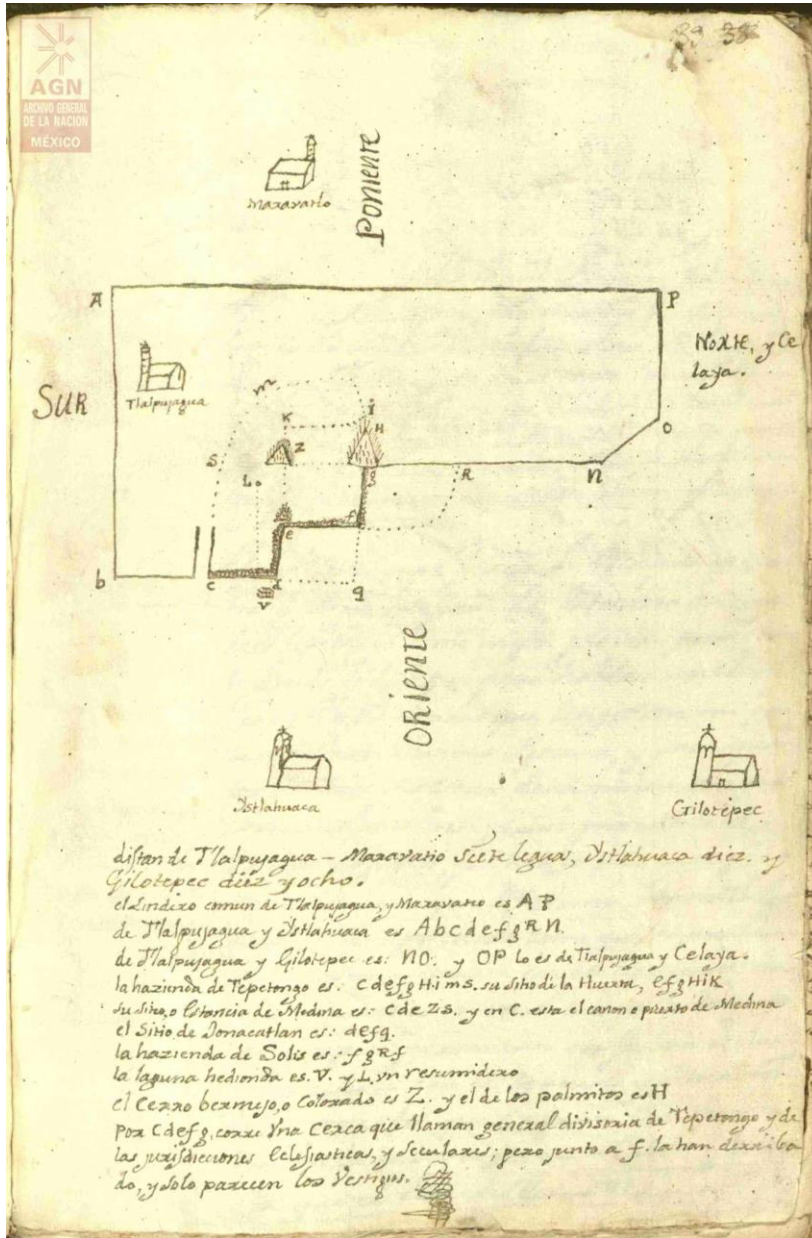 AGN
ARCHIVO GENERAL
DE LA NACION
MÉXICO
38
Poniente
Maravatio
A
P
Norte, y Ce
laya.
Sur
Tlalpujagua
m
i
K
H
O
S
Z
g
R
N
L.
e
f
b
c
d
q
V
Oriente
Ystlahuaca
Gilotepec
distan de Tlalpujagua - Maravatio siete leguas, Ystlahuaca diez. y
Gilotepec diez y ocho.
el Lindero comun de Tlalpujagua, y Maravatio es A P
de Tlalpujagua y Ystlahuaca es A b c d e f g R N.
de Tlalpujagua y Gilotepec es: NO. y OP lo es de Tlalpujagua y Celaya.
la hazienda de Tepetongo es: c d e f g H i m s. su sitio de la Huerta, e f g H i K
su sitio, o Estancia de Medina es: c d e Z s. y en C. esta el cañon o puerto de Medina
el Sitio de Jonacatlan es: d e f q.
la hazienda de Solis es: f g R f
la laguna hedionda es. V. y L. vn resumidero
el Cerro bermejo, o Colorado es Z. y el de los palmitos es H
por C d e f g, corre vna Cerca que llaman general divisoria de Tepetongo y de
las jurisdicciones Eclesiasticas, y seculares; pero junto a f. la han derriba
do, y solo parecen los Vestigios.